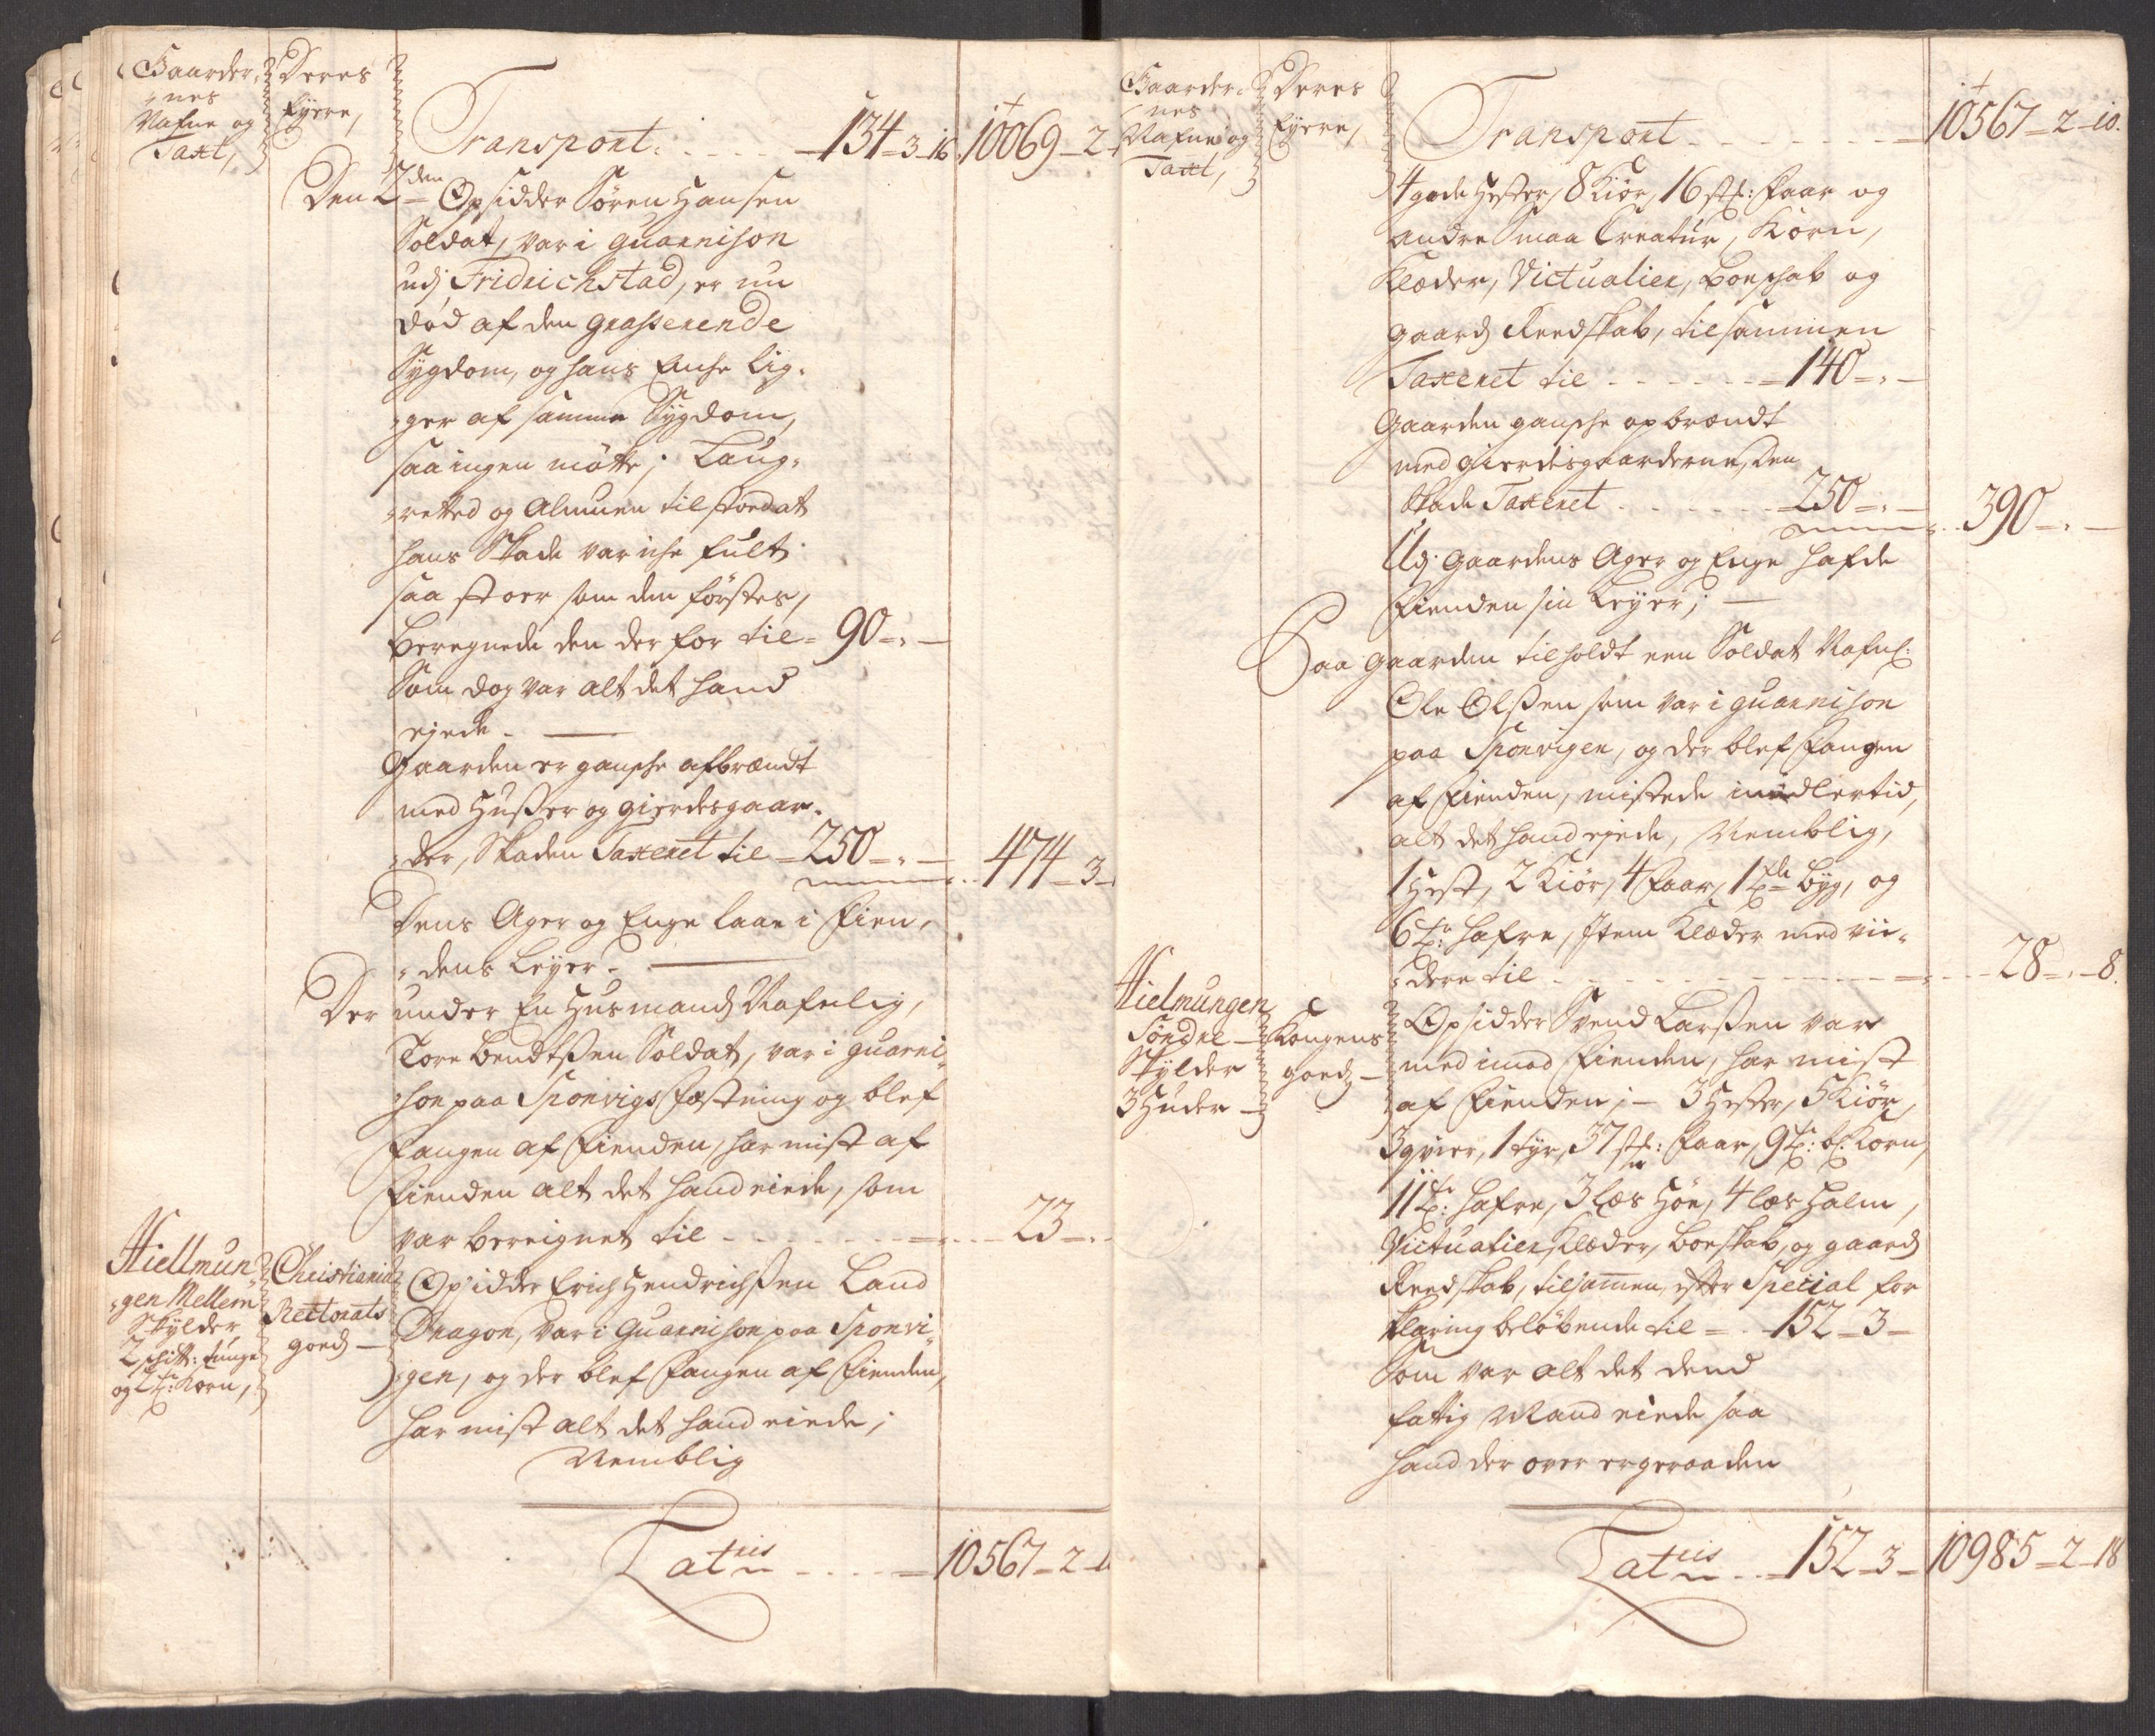 Gaarder-
nes
Nafne og
Taxt,
Deres
Eyere,
Transport. 134-3-16. 10069-2-
Den 2den Opsidder Søren Hansen
Soldat, var i guarnison
udj Fridrichstad, er nu
død af den grasserende
Sygdom, og hans Enche lig-
ger af samme Sygdom,
saa ingen møtte; Laug-
retted og Almuen tilstoed at
hans Skade var iche fult
saa stoer som den førstes,
beregnede den der for til 90-"-
Som dog var alt det hand
ejede.
Gaarden er gansche afbrændt
med Husser og gierdesgaar-
der, Skaden Taxeret til 250-"- 474-3-
Dens Ager og Enge laae i Fien-
dens Leyer.
Der under En Husmand Nafnlig,
Tore Bendtssen Soldat, var i guarni-
son paa Sponvigs Fæstning og blef
fangen af Fienden, har mist af
Fienden alt det hand eiede, som
var bereignet til 23-"-
Hiellmun-
gen Mellem
Skylder
2 schitt: tunge
og 2 t: Korn,
Christiania
Rectorats
goeds
Opsidder Erich Hendrichssen Land
Dragon, var i Guarnison paa Sponvi-
gen, og der blef fangen af Fienden,
har mist alt det hand eiede;
Nemblig
Latris 10567-2-
Gaarder-
nes
Nafne og
Taxt,
Deres
Eyere,
Transport 10567-2-10.
4 gode Hester, 8 Kiør, 16 stk: Faar og
andre Smaa Creatur, Korn,
Klæder, Victualier, Boeschab og
gaards Reedskab, tilsammen
Taxeret til 140-"-
Gaarden gansche opbrændt
med gierdesgaarderne, den
Skade Taxeret 250-"- 390-"-
Udj Gaardens Ager og Enge hafde
Fienden sin Leyer;
Paa Gaarden tilholdt een Soldat Nafnl:
Ole Olssen som var i guarnison
paa Sponvigen, og der blef fangen
af Fienden, mistede imidlertid,
alt det hand ejede, Nemblig,
1 Hest, 2 Kiør, 4 Faar, 1 tde Byg, og
6 tr: Hafre, Item Klæder med vii-
dere til 28-"-8.
Hielmungen
Søndre
Skylder
3 Huder
Kongens
goeds
Opsidder Svend Larssen var
med imod Fienden, har mist
af Fienden; 3 Hester, 5 Kiør,
3 qvier, 1 tyr, 37 stk: Faar, 9 tr: bl: Korn,
11 tr: Hafre, 3 læs Høe, 4 læs Halm,
Victualier, Klæder, Boeskab, og gaards
Reedskab, tilsamen, efter Special for
klaring beløbende til 152-3-
Som var alt det dend
fattig Mand eiede saa
hand der over er geraaden
Latris 152-3- 10985-2-18